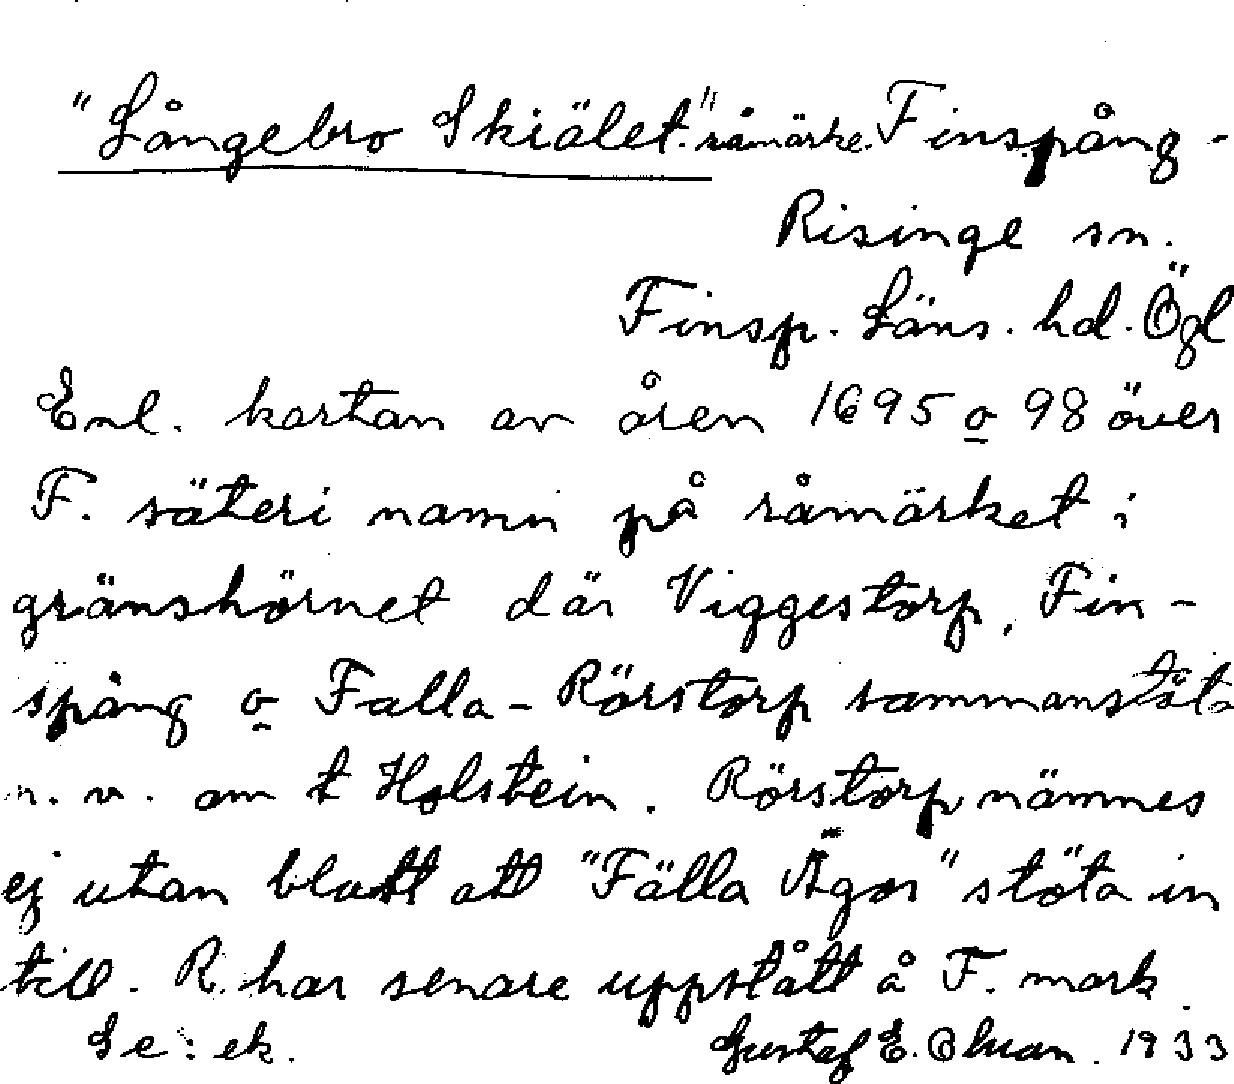 "Långebro Skiälet." råmärke. Finspång -
Risinge sn.
Finsp. Läns. hd. Ögl
Enl. kartan av åren 1695 o 98 över
F. säteri namn på råmärket i
gränshörnet där Viggestorp, Fin-
spång o Falla-Rörstorp sammanstöta
n. v. om t Holstein. Rörstorp nämnes
ej utan blott att "Fälla Ägor" stöta in
till. R. har senare uppstått å F. mark.
Se: ek. Gustaf E. Ohman. 1933